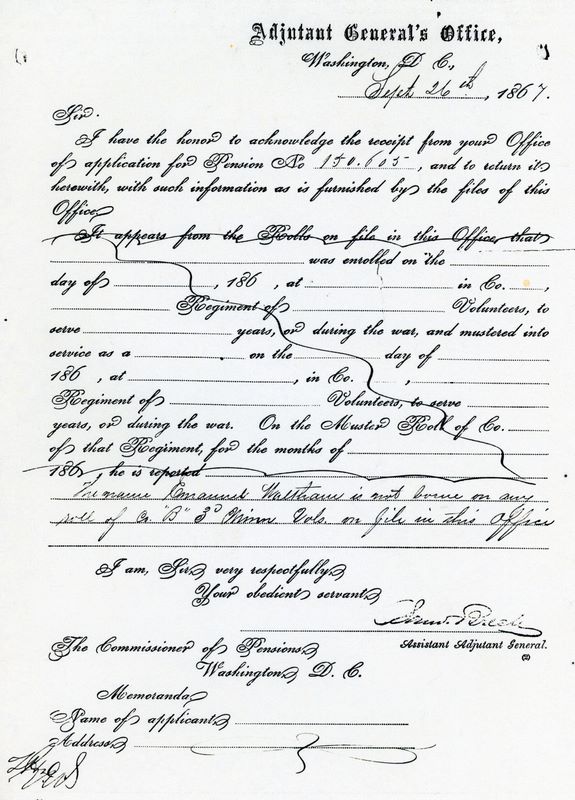 Adjutant General's Office,
Washington, D. C.,
Sept 26th, 1867.
Sir:
I have the honor to acknowledge the receipt from your Office
of application for Pension No 150.605, and to return it
herewith, with such information as is furnished by the files of this
Office.
It appears from the Rolls on file in this Office, that
was enrolled on the
day of , 186 , at in Co. ,
Regiment of Volunteers, to
serve years, or during the war, and mustered into
service as a on the day of
186 , at , in Co. ,
Regiment of Volunteers, to serve
years, or during the war. On the Muster Roll of Co.
of that Regiment, for the months of
186 , he is reported
The name Emanuel Waltham is not borne on any
roll of Co. "B" 3d Minn. Vols. on file in this Office
I am, Sir, very respectfully,
Your obedient servant,
Assistant Adjutant General.
(2)
The Commissioner of Pensions,
Washington, D. C.
Memoranda,
Name of applicant,
Address,